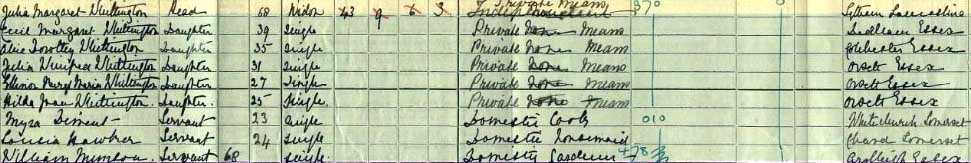 Julia Margaret Whittington Head 68 Widow 43 9 6 3 Private Means 370 Lytham Lancashire
Cecil Margaret Whittington Daughter 39 Single Private None Means Dedham Essex
Alice Dorothy Whittington Daughter 35 Single Private None Means Colchester Essex
Julia Winifred Whittington Daughter 31 Single Private None Means Orsett Essex
Ellinor Mary Maria Whittington Daughter 27 Single Private None Means Orsett Essex
Hilda Joan Whittington Daughter 25 Single Private None Means Orsett Essex
Myra Servant 23 Single Domestic Cook 010 Whitchurch Somerset
Louisa Hawker Servant 24 Single Domestic Housemaid Chard Somerset
William Servant 68 Single Domestic Gardener Ardleigh Essex